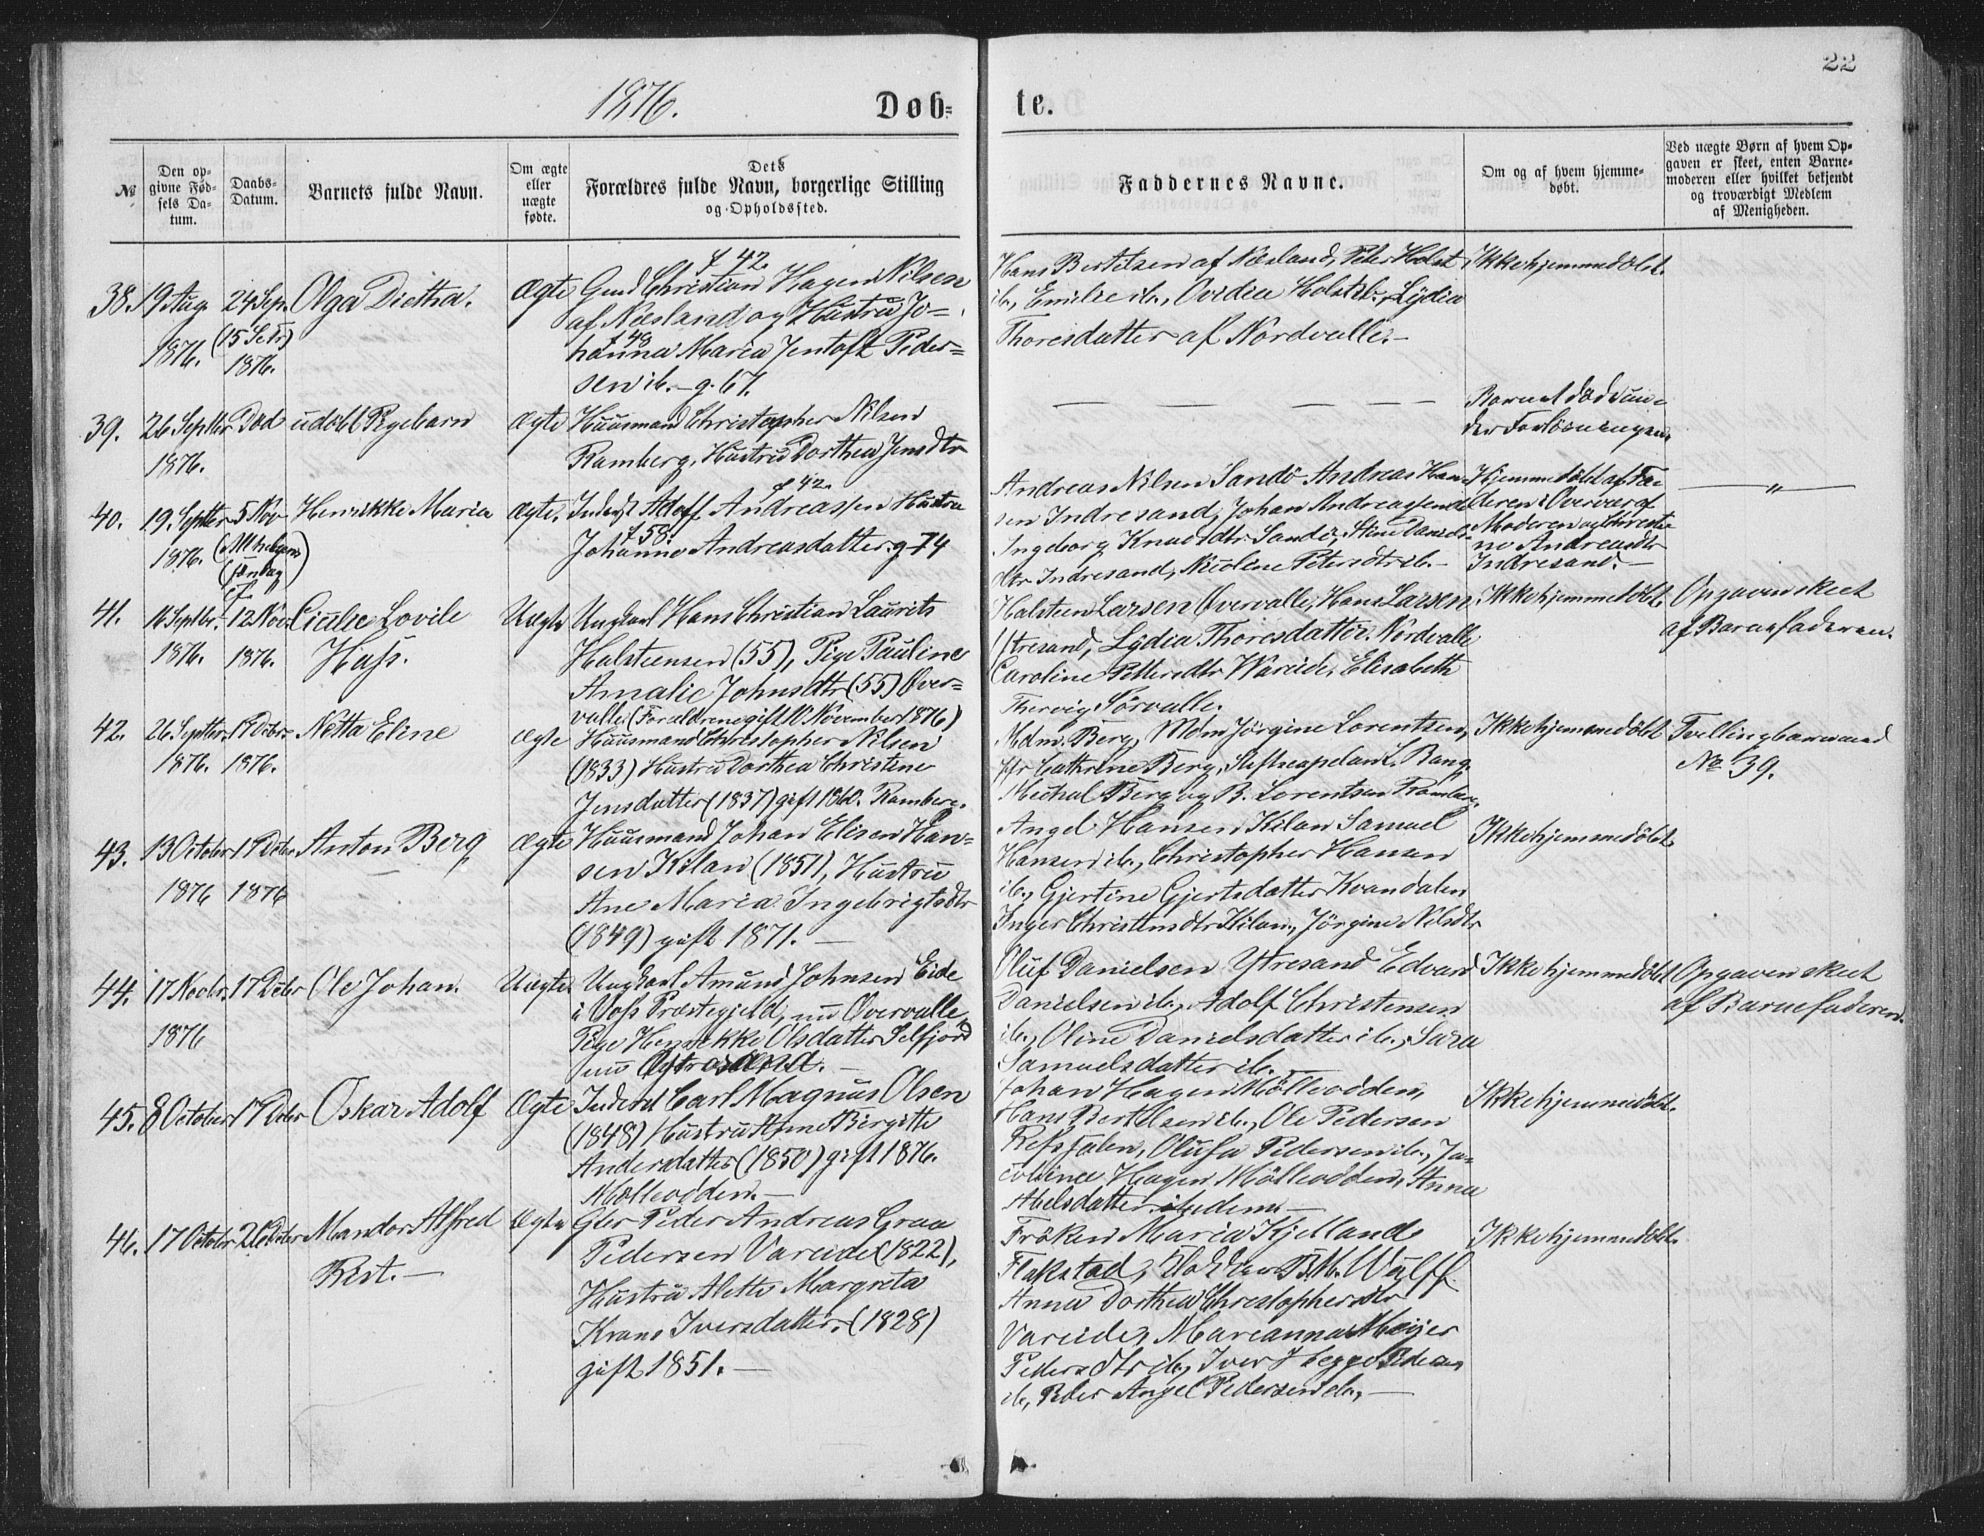 22
1876.
Døb-
te.
№
Den op-
givne Fød-
sels Da-
tum.
Daabs-
Datum.
Barnets fulde Navn.
Om ægte
eller
uægte
fødte.
Dets
Forældres fulde Navn, borgerlige Stilling
og Opholdssted.
Faddernes Navne.
Om og af hvem hjemme-
døbt.
Ved uægte Børn af hvem Op-
gaven er skeet, enten Barne-
moderen eller hvilket bekjendt
og troværdigt Medlem
af Menigheden.
38. 19 Aug. 1876.
24 Sep. (15 S. e. Tr.) 1876.
Olga Diethea.
Ægte
f 42.
Gmd Christian Hagen Nilsen
af Næsland og Hustru Jo-
f 48
hanna Maria Jentoft Peder-
sen ib. – g. 67.
Hans Bertelsen af Næsland, Peter Holst
ib, Emilie ib., Ovidia Holst ib., Lydia
Thoresdatter af Nordvalle. –
Ikke hjemmedöbt.
39. 26 Septbr. 1876.
Död
udöbt Pigebarn
Ægte
Huusmand Christopher Nilsen
Ramberg, Hustru Dorthea Jensdtr
Barnet död un-
der Forlösningen.
40. 19. Septbr 1876.
5 Nov
Henrikke Maria
Ægte.
f 42.
Inderst Adolf Andreassen Hustru
f 58.
Johanna Andreasdatter. g 74
Andreas Nilsen Sandö Andreas Han-
sen Indresand, Johan Andreassen ib
Ingeborg Knudsdtr Sandö, Stine Daniels-
dtr Indresand, Nicoline Petersdtr ib. –
Hjemmedöbt af Fa-
deren i Overvær af
Moderen og Christi-
ne Andreasdtr
Indresand. –
"
41. 16 Septbr. 1876.
12 Nov. 1876.
Lovile
Hass.
Uægte
Ungkarl Hans Christian Laurits
Halsteensen (55), Pige Pauline
Amalie Johnsdtr (55) Över-
valle. (Forældrene gift 10 November 1876)
Halsteen Larsen Övervalle, Hans Larsen
Ytresand, Lydia Thoresdatter Nordvalle
Caroline Pettersdtr Vareide, Elisabeth
Sörvalle.
Ikke hjemmedöbt.
Opgaven skeet
af Barnefaderen.
42. 26. Septbr. 1876.
17 Decbr. 1876.
Netta Eline
Ægte
Huusmand Christopher Nilsen
(1833) Hustru Dorthea Christine
Jensdatter (1837) gift 1860. Ramberg.
Mdm. Berg, Mdm Jörgine Lorentzen,
Cathrine Berg, Stiftscapelan L. Bang,
Michal Berg og B. Lorentsen Ramberg
Ikke hjemmedöbt
Tvillingbarn med
No 39.
43. 13 October 1876
17 Decbr 1876
Anton Berg
Ægte
Huusmand Johan Elisen Han-
sen Kilan (1851), Hustru
Ane Maria Ingebrigtsdtr
(1849) gift 1871. –
Angel Hansen Kilan Samuel
Hansen ib., Christopher Hansen
ib., Gjertine Gjertsdatter Kvandalen
Inger Christensdtr Kilan, Jörgine Nilsdtr
Ikke hjemmedöbt.
44. 17 Novbr. 1876
17 Decbr
Ole Johan.
Uægte
Ungkarl Amund Johnsen Eide
i Voss Præstegjeld, nu Övervalle
Pige Henrikke Olsdatter Selfjord
nu Ytresand. –
Oluf Danielsen Ytresand Edvard
Danielsen ib., Adolf Christensen
ib., Oline Danielsdatter ib., Sara
Samuelsdatter ib.
Ikke hjemmedöbt
Opgaven skeet
af Barnefaderen.
45. 8 October
17 Decbr
Oskar Adolf
Ægte
Inderst Carl Magnus Olsen
(1848) Hustru Anne Birgitte
Andersdatter (1850) gift 1876.
Mölleodden. –
Johan Hagen Mölleodden,
Hans Bertelsen ib., Ole Pedersen
Olufa Pedersen ib., Ja-
cobine Hagen Mölleodden, Anna
Abelsdatter ibidem –
Ikke hjemmedöbt.
46. 17 October
26 Decbr
Mandor Alfred
Rist. –
Ægte
Gbr Peder Andreas Graa
Pedersen Vareide (1822),
Hustru Alette Margreta
Krans Iversdatter, (1828)
gift 1851. –
Fröken Maria Kjelland
Flakstad, B. M. Wulff
Anna Dorthea Christophersdtr
Vareide, Marianna Meijer
Pedersdtr ib., Iver Hegge Pedersen
ib., Peder Angel Pedersen ib., –
Ikke hjemmedöbt.